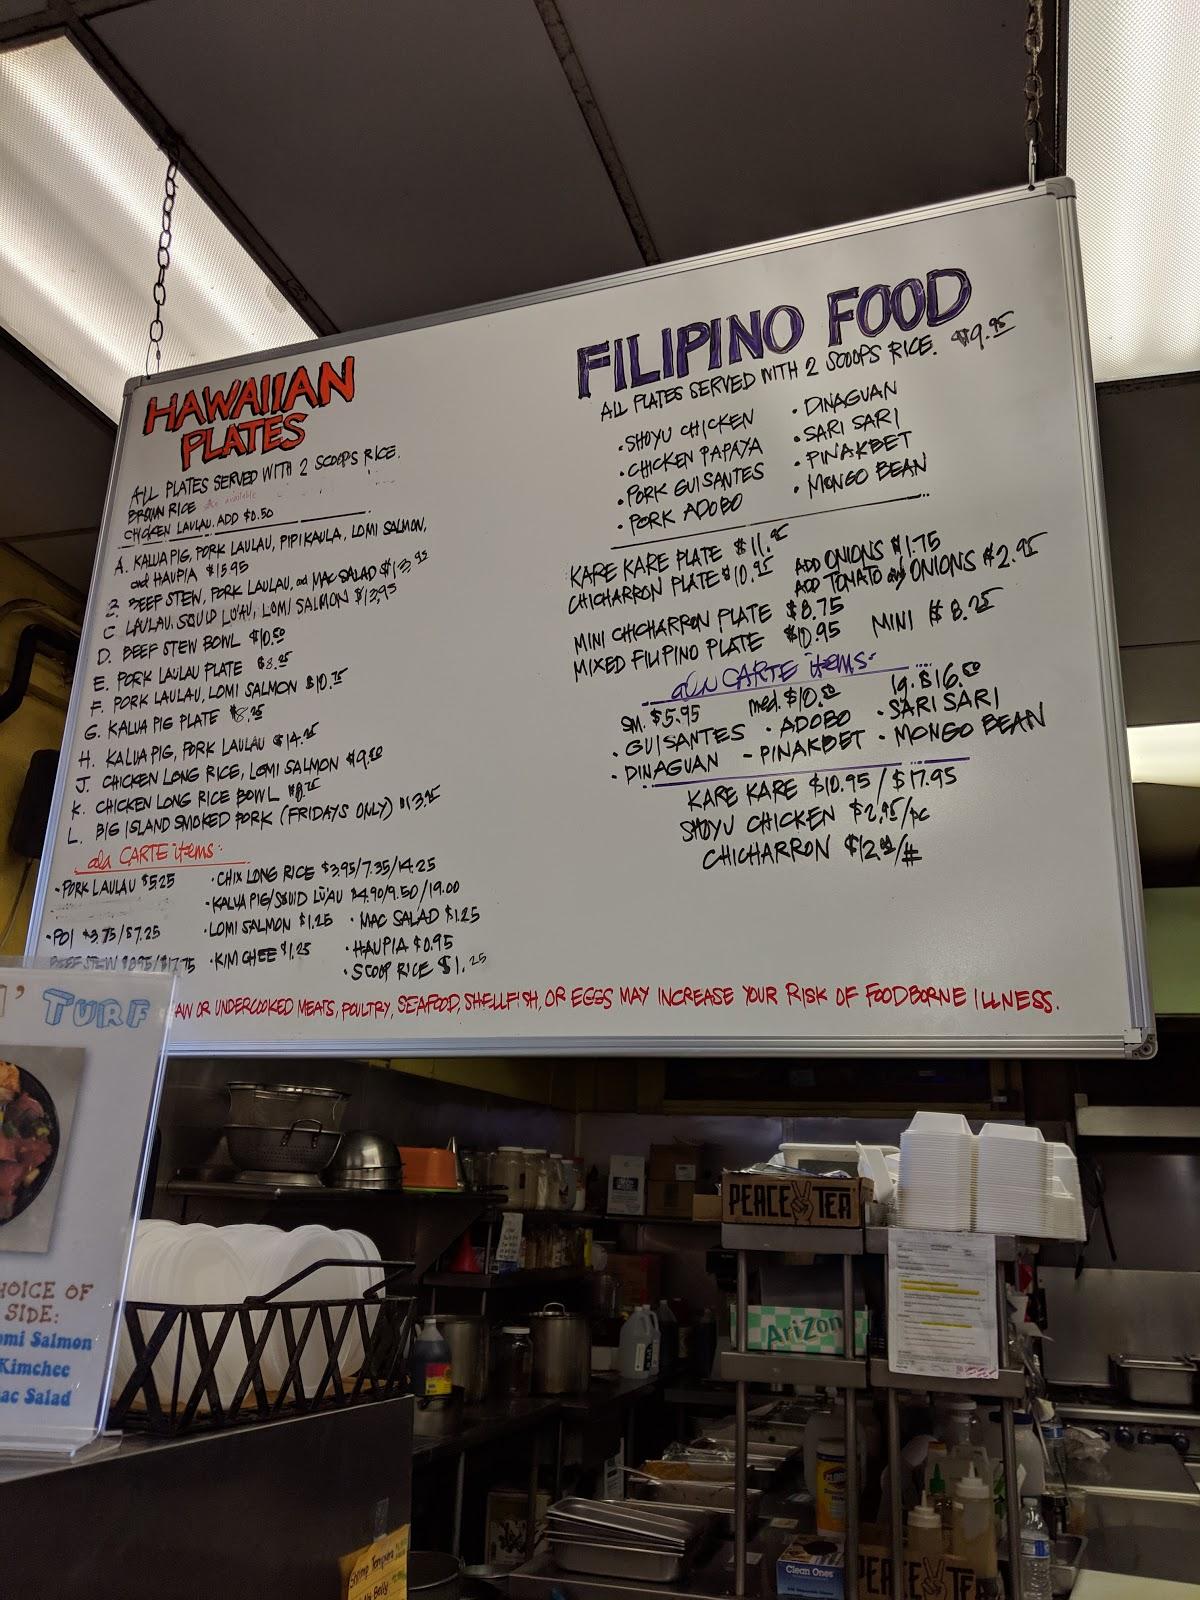 HAWAIIAN
PLATES
ALL PLATES SERVED WITH 2 SCOOPS RICE.
BROWN RICE also available
CHICKEN LAULAU, ADD $0.50
A. KALUA PIG, PORK LAULAU, PIPIKAULA, LOMI SALMON,
and HAUPIA $15.95
B. BEEF STEW, PORK LAULAU, and MAC SALAD $13.95
C LAULAU, SQUID LU'AU, LOMI SALMON $13.95
D. BEEF STEW BOWL $10.50
E. PORK LAULAU PLATE
F. PORK LAULAU, LOMI SALMON
G. KALUA PIG PLATE
H. KALUA PIG, PORK LAULAU
J. CHICKEN LONG RICE, LOMI SALMON
K. CHICKEN LONG RICE BOWL
L. BIG ISLAND SMOKED PORK (FRIDAYS ONLY)
ala CARTE items:
• PORK LAULAU $5.25
• POI $3.75/$7.25
BEEF STEW
• CHIX LONG RICE $3.95/7.35/14.25
• KALUA PIG/SQUID LU'AU $4.90/9.50/19.00
• LOMI SALMON $1.25 • MAC SALAD $1.25
• KIM CHEE $1.25 • HAUPIA $0.95
• SCOOP RICE $1.25
FILIPINO FOOD
ALL PLATES SERVED WITH 2 SCOOPS RICE. $9.95
• SHOYU CHICKEN
• CHICKEN PAPAYA
• PORK GUISANTES
• PORK ADOBO
• DINAGUAN
• SARI SARI
• PINAKBET
• MONGO BEAN
KARE KARE PLATE $11.95
CHICHARRON PLATE $10.95 ADD ONIONS $1.75
ADD TOMATO and ONIONS $2.95
MINI CHICHARRON PLATE $8.75
MIXED FILIPINO PLATE $10.95 MINI $8.25
ala CARTE items:
SM. $5.95 med. $10.50 lg. $16.50
• GUISANTES • ADOBO • SARI SARI
• DINAGUAN - PINAKBET • MONGO BEAN
KARE KARE $10.95 / $17.95
SHOYU CHICKEN $2.95/pc
CHICHARRON
AW OR UNDERCOOKED MEATS, POULTRY, SEAFOOD, SHELLFISH, OR EGGS MAY INCREASE YOUR RISK OF FOODBORNE ILLNESS.
TURF
HOICE OF
SIDE:
omi Salmon
Kimchee
ac Salad
PEACE TEA
AriZona
Clean Ones
PEACE TEA
Shrimp Tempura
Belly